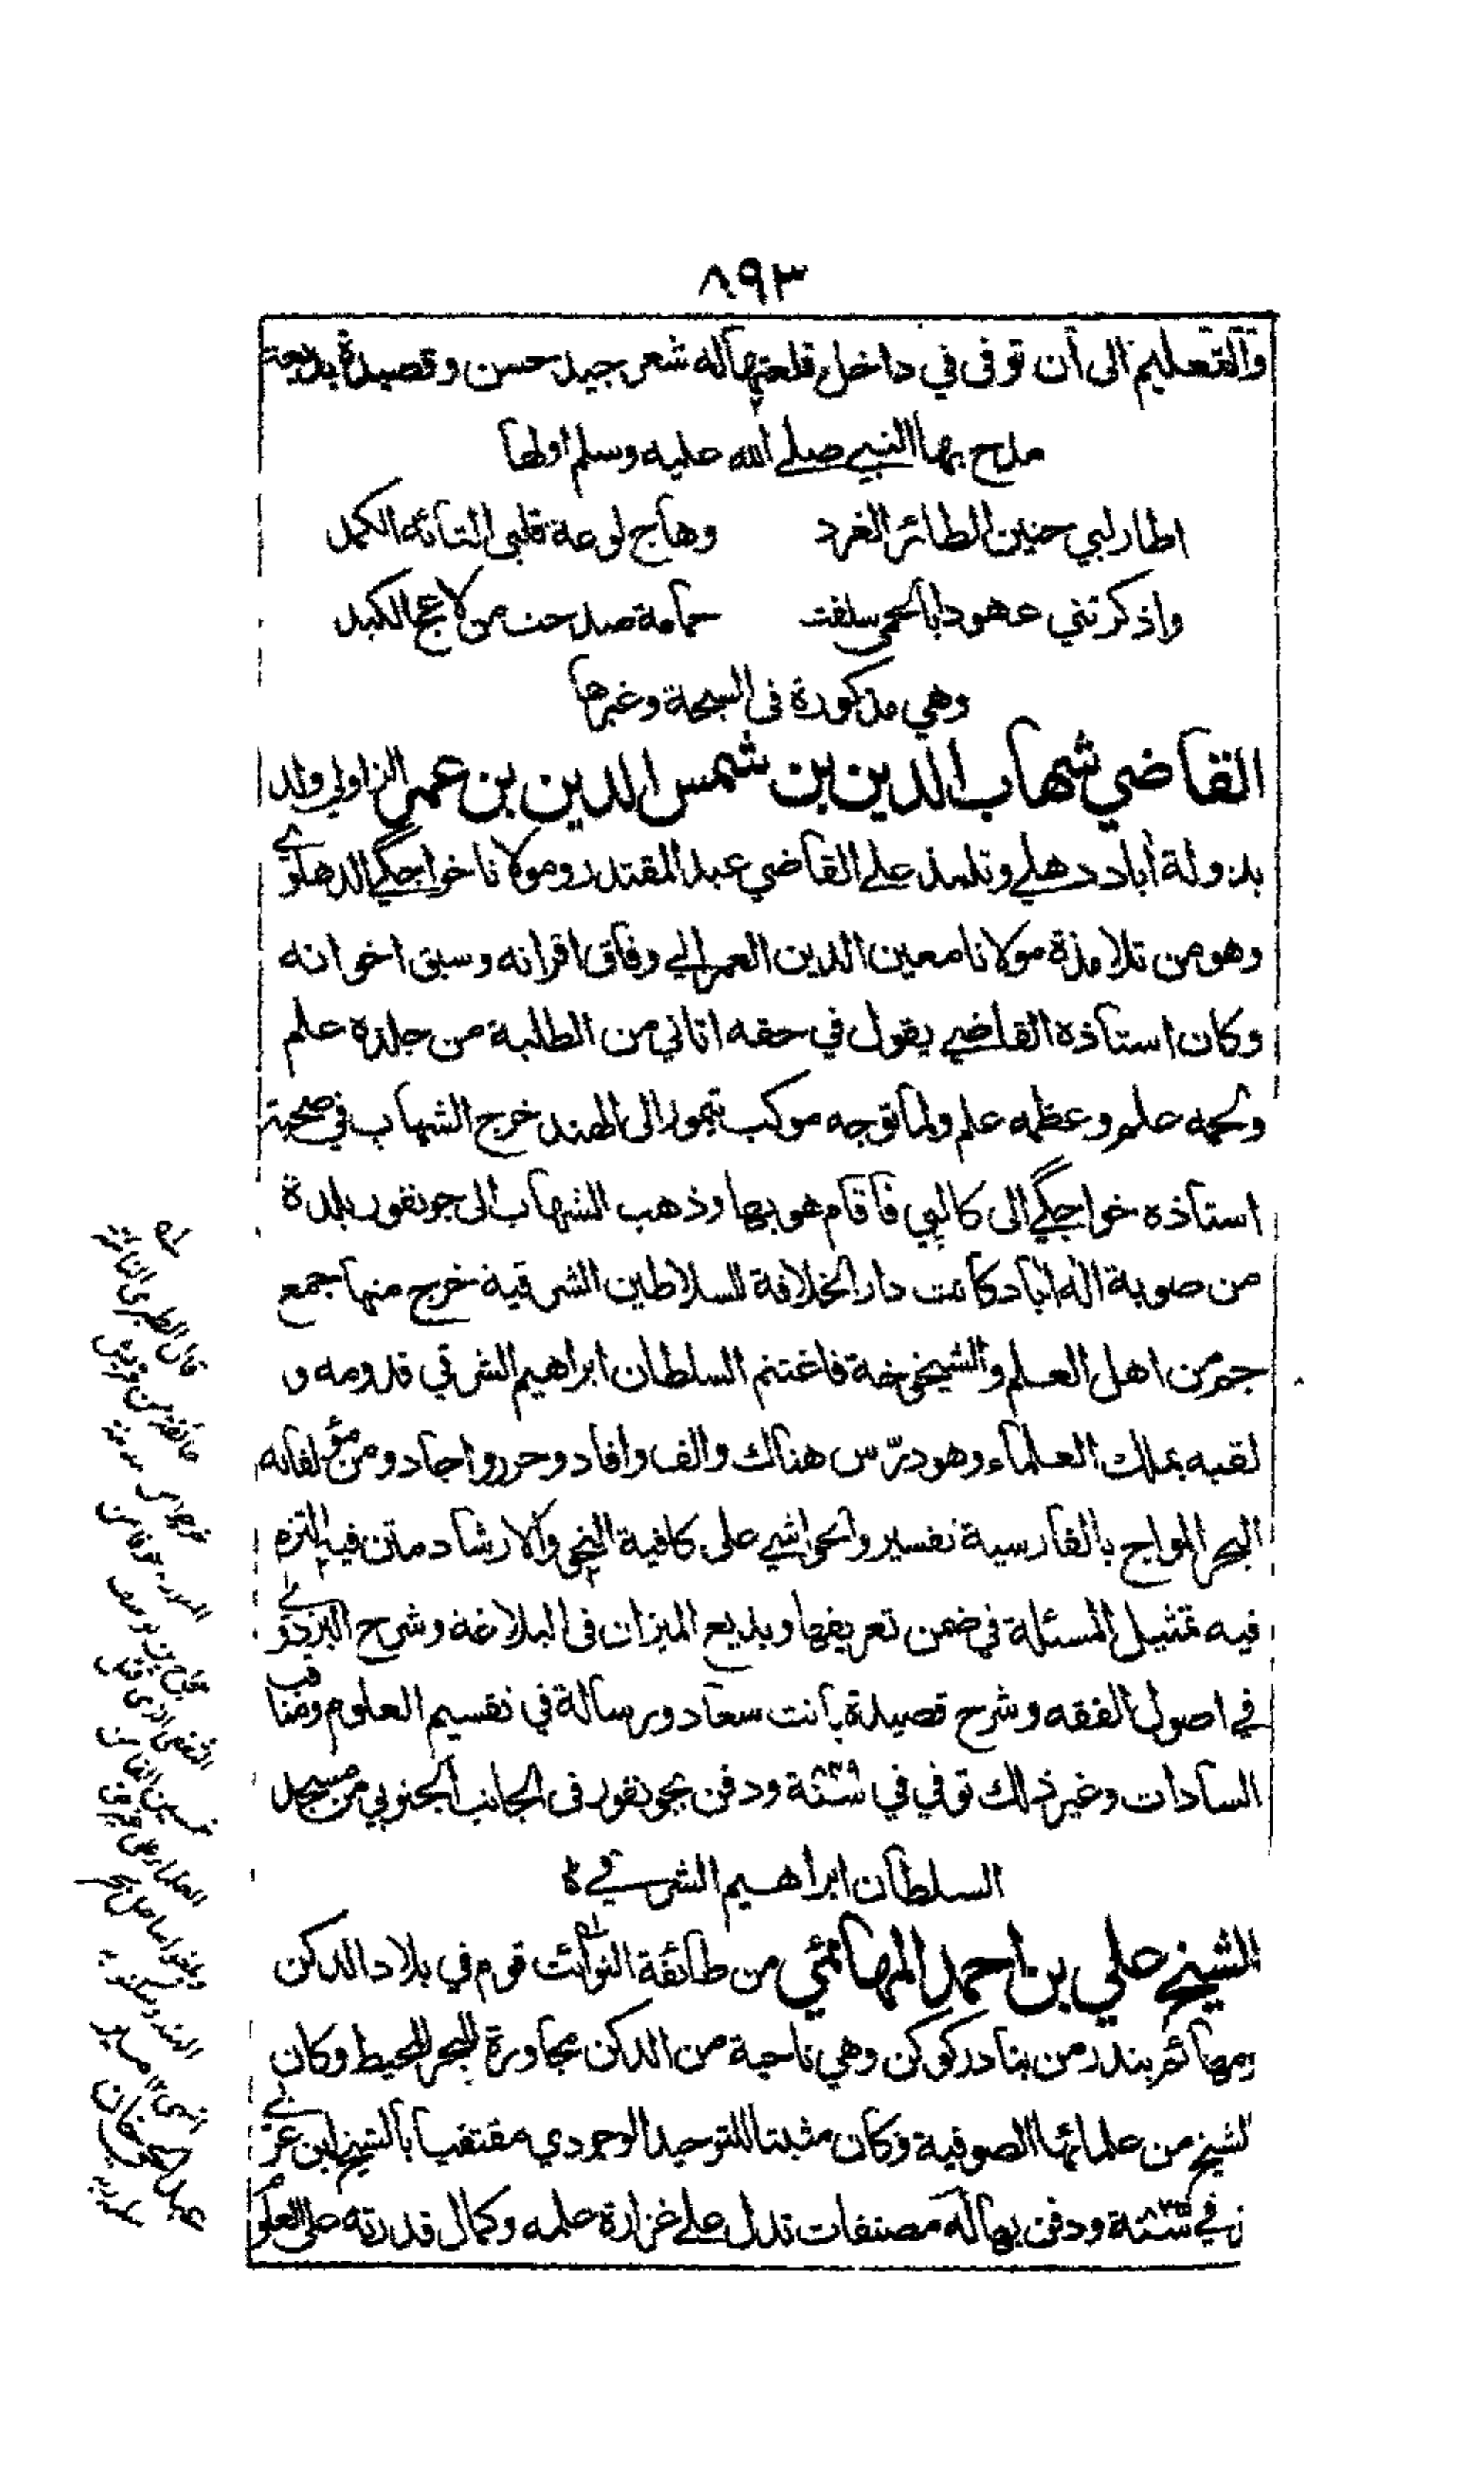 ٨٩٣
والتعليم الى أن توفى في داخل قلعتها له شعر جيد حسن وقصيدة بديعة
مدح بها النبي صلے الله عليه وسلم اولها
اطار لبي حنين الطائر الغرد وهاج لوعة قلبي التائه الكمد
واذكرتني عهودا بالحمى سلفت حمامة صدحت من لاعج الكبد
وهي مذكورة فى السبحة وغيرها
القاضي شهاب الدين بن شمس الدين بن عمر الزاولي ولد
بدولة أباد دهلے وتلمذ علے القاضي عبد المقتدر ومولانا خواجگے الدهلوے
وهو من تلامذة مولانا معين الدين العمراني وفاق اقرانه وسبق اخوانه
وكان استاذه القاضے يقول في حقه اتاني من الطلبة من جلده علم
ولحمه علم وعظمه علم ولما توجه موكب تيمور الى الهند خرج الشهاب في صحبة
استاذه خواجگے الى كالپي فاقام هو بها وذهب الشهاب الى جونفور بلدة
من صوبة اله أباد كانت دار الخلافة للسلاطين الشرقية خرج منها جمع
جم من اهل العلم والشيخوخة فاغتنم السلطان ابراهيم الشرقي قدومه و
لقبه بملك العلماء وهو درّس هناك والف وافاد وحرر واجاد ومن مؤلفاته
البحر المواج بالفارسية تفسير والحواشے على كافية النحو والارشاد متن فيه التزم
فيه تمثيل المسئلة في ضمن تعريفها وبديع الميزان فى البلاغة وشرح البزدوے
في اصول الفقه وشرح قصيدة بانت سعاد ورسالة في تقسيم العلوم ومناقب
السادات وغير ذلك توفي في سنة ودفن بجونفور فى الجانب الجنوبي من مسجد
السلطان ابراهيم الشرقے
الشيخ علي بن احمد المهائمي من طائفة النوائت قوم في بلاد الدكن
ومهائم بندر من بنادر كوكن وهي ناحية من الدكن مجاورة للبحر المحيط وكان
لشيخ من علمائها الصوفية وكان مثبتا للتوحيد الوجودي مقتفيا بالشيخ ابن عربے
في سنة ودفن بها له مصنفات تدل علے غزارة علمه وكمال قدرته على العلو
قال الطبري